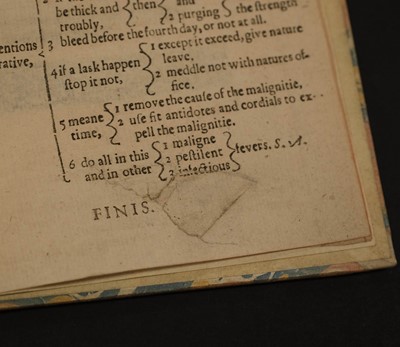 be thick and then and
troubly, 2 purging the strength
3 bleed before the fourth day, or not at all.
entions
rative,
1 except it exceed, give nature
4 if a lask happen leave.
stop it not, 2 meddle not with natures of-
fice.
1 remove the cause of the malignitie,
5 meane 2 use fit antidotes and cordials to ex-
time, pell the malignitie.
1 maligne
6 do all in this 2 pestilent fevers. S. A.
and in other 3 infectious
FINIS.